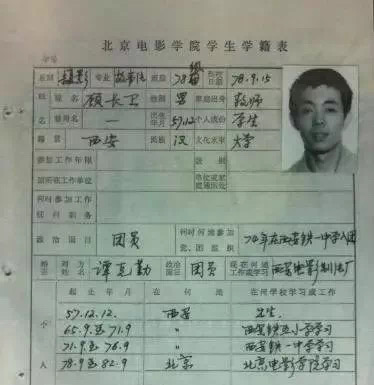 北京电影学院学生学籍表
学号
系别 摄影 专业 故事片 班级 78级 入校日期 78.9.15
姓名 现名 顾长卫 性别 男 家庭出身 教师
曾用名 — 出生年月 57.12 个人成份 学生
籍贯 西安 民族 汉 文化水平 大学
参加工作年限 级别
原所在工作单位
何时参加工作任何职务
政治面目 团员 何时何地参加党、团组织 74年在西安铁一中学入团
婚否 对方姓名 谭克勤 政治面目 团员 现在何地工作或学习 西安电影制片厂
起止年月 在何地 在何学校学习或工作
57.12.12. 西安 出生.
65.9至71.9 〃 西安铁五小学学习
71.9至76.9 〃 西安铁一中学学习
78.9至82.9 北京 北京电影学院学习
个人